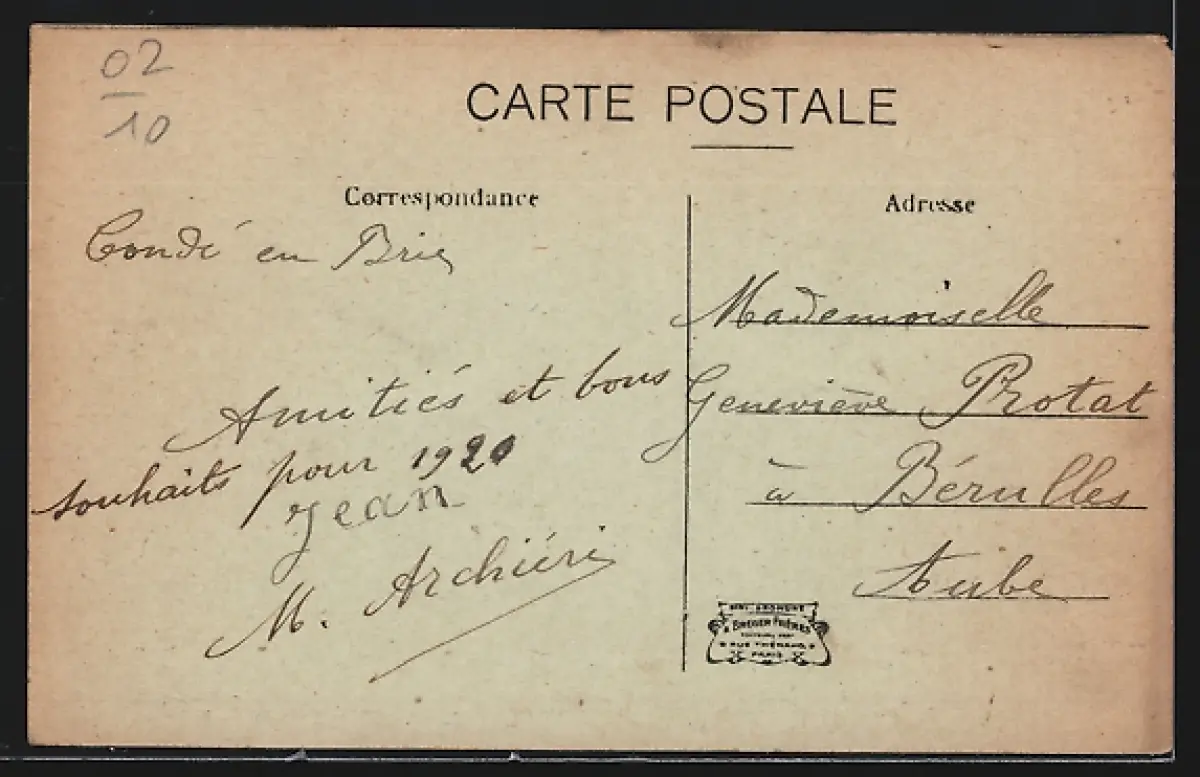 02
10
CARTE POSTALE
Correspondance
Condé en Brie
Amitiés et bons
souhaits pour 1920
Jean
M. Archiéri
Adresse
Mademoiselle
Geneviève Protat
à Bérulles
Aube
BREGER FRÈRES
9 RUE THÉNARD 9
PARIS